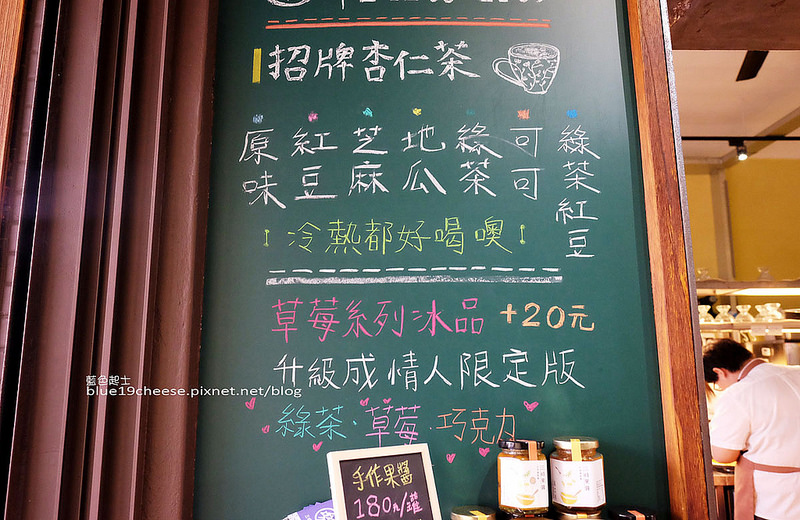 招牌杏仁茶
原味
紅豆
芝麻
地瓜
綠茶
可可
綠茶紅豆
冷熱都好喝噢!
草莓系列冰品 +20元
升級成情人限定版
綠茶·草莓·巧克力
手作果醬
180元/罐
藍色起士
blue19cheese.pixnet.net/blog